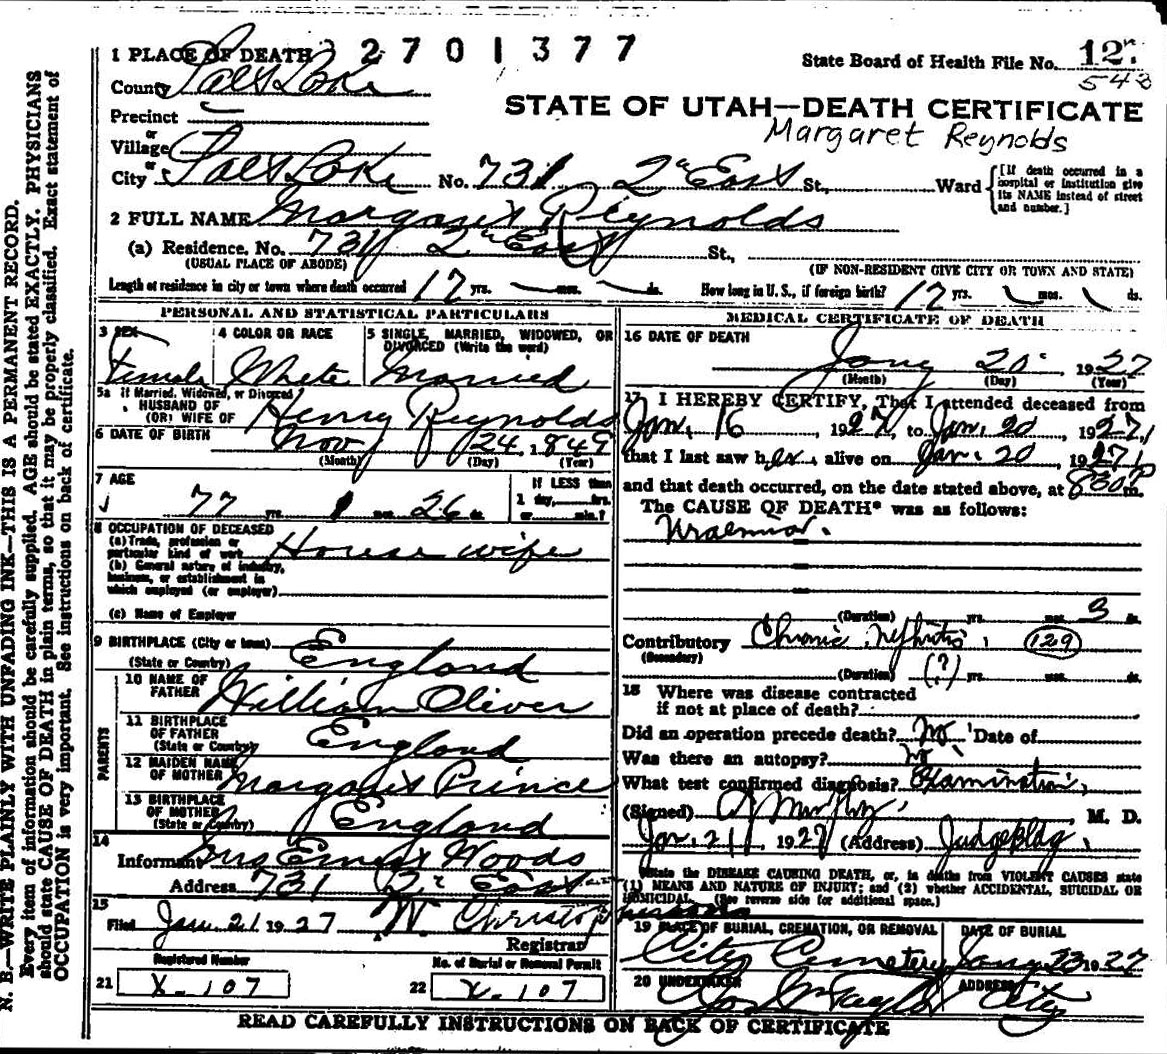 1 PLACE OF DEATH 3 2 7 0 1 3 7 7
State Board of Health File No. 12
543
County Salt Lake
STATE OF UTAH—DEATH CERTIFICATE
Precinct
Margaret Reynolds
or
Village
or
City Salt Lake No. 731 2nd East St., Ward [If death occurred in a hospital or institution give its NAME instead of street and number.]
2 FULL NAME Margaret Reynolds
(a) Residence. No. 731 2nd East St.,
(USUAL PLACE OF ABODE) (IF NON-RESIDENT GIVE CITY OR TOWN AND STATE)
Length of residence in city or town where death occurred 17 yrs. mos. ds. How long in U. S., if foreign birth? 17 yrs. mos. ds.
PERSONAL AND STATISTICAL PARTICULARS
3 SEX 4 COLOR OR RACE 5 SINGLE, MARRIED, WIDOWED, OR DIVORCED (Write the word)
Female White Married
5a If Married, Widowed, or Divorced
HUSBAND OF
(OR) WIFE OF Henry Reynolds
6 DATE OF BIRTH Nov 24, 1849
(Month) (Day) (Year)
7 AGE If LESS than
77 1 mos. 26 ds. 1 day, hrs.
or min.?
8 OCCUPATION OF DECEASED
(a) Trade, profession or
particular kind of work House wife
(b) General nature of industry,
business, or establishment in
which employed (or employer)
(c) Name of Employer
9 BIRTHPLACE (City or town)
(State or Country) England
PARENTS
10 NAME OF
FATHER William Oliver
11 BIRTHPLACE
OF FATHER
(State or Country) England
12 MAIDEN NAME
OF MOTHER Margaret Prince
13 BIRTHPLACE
OF MOTHER
(State or Country) England
14
Informant Mrs Ernest Woods
Address 731 2nd East
15
Filed Jan 21 1927 W. Christopherson
Registrar
Registered Number No. of Burial or Removal Permit
21 X-107 22 X-107
MEDICAL CERTIFICATE OF DEATH
16 DATE OF DEATH
Jany 20 1927
(Month) (Day) (Year)
17 I HEREBY CERTIFY, That I attended deceased from
Jan. 16, 1927, to Jan. 20, 1927,
that I last saw her alive on Jan. 20, 1927,
and that death occurred, on the date stated above, at 830 P m.
The CAUSE OF DEATH* was as follows:
Uraemia.
(Duration) yrs. mos. 3 ds.
Contributory Chronic Nephritis, 129
(Secondary)
(Duration) (?) yrs. mos. ds.
18 Where was disease contracted
if not at place of death?
Did an operation precede death? No Date of
Was there an autopsy? No
What test confirmed diagnosis? Examination,
(Signed) Murphy, M. D.
Jan. 21, 1927 (Address) Judge Bldg.
*State the DISEASE CAUSING DEATH, or, in deaths from VIOLENT CAUSES state
(1) MEANS AND NATURE OF INJURY; and (2) whether ACCIDENTAL, SUICIDAL OR
HOMICIDAL. (See reverse side for additional space.)
19 PLACE OF BURIAL, CREMATION, OR REMOVAL DATE OF BURIAL
City Cemetery Jany 23 1927
20 UNDERTAKER ADDRESS
Jos Wm Taylor City
READ CAREFULLY INSTRUCTIONS ON BACK OF CERTIFICATE
N. B.—WRITE PLAINLY WITH UNFADING INK—THIS IS A PERMANENT RECORD.
Every item of information should be carefully supplied. AGE should be stated EXACTLY. PHYSICIANS
should state CAUSE OF DEATH in plain terms, so that it may be properly classified. Exact statement of
OCCUPATION is very important. See instructions on back of certificate.